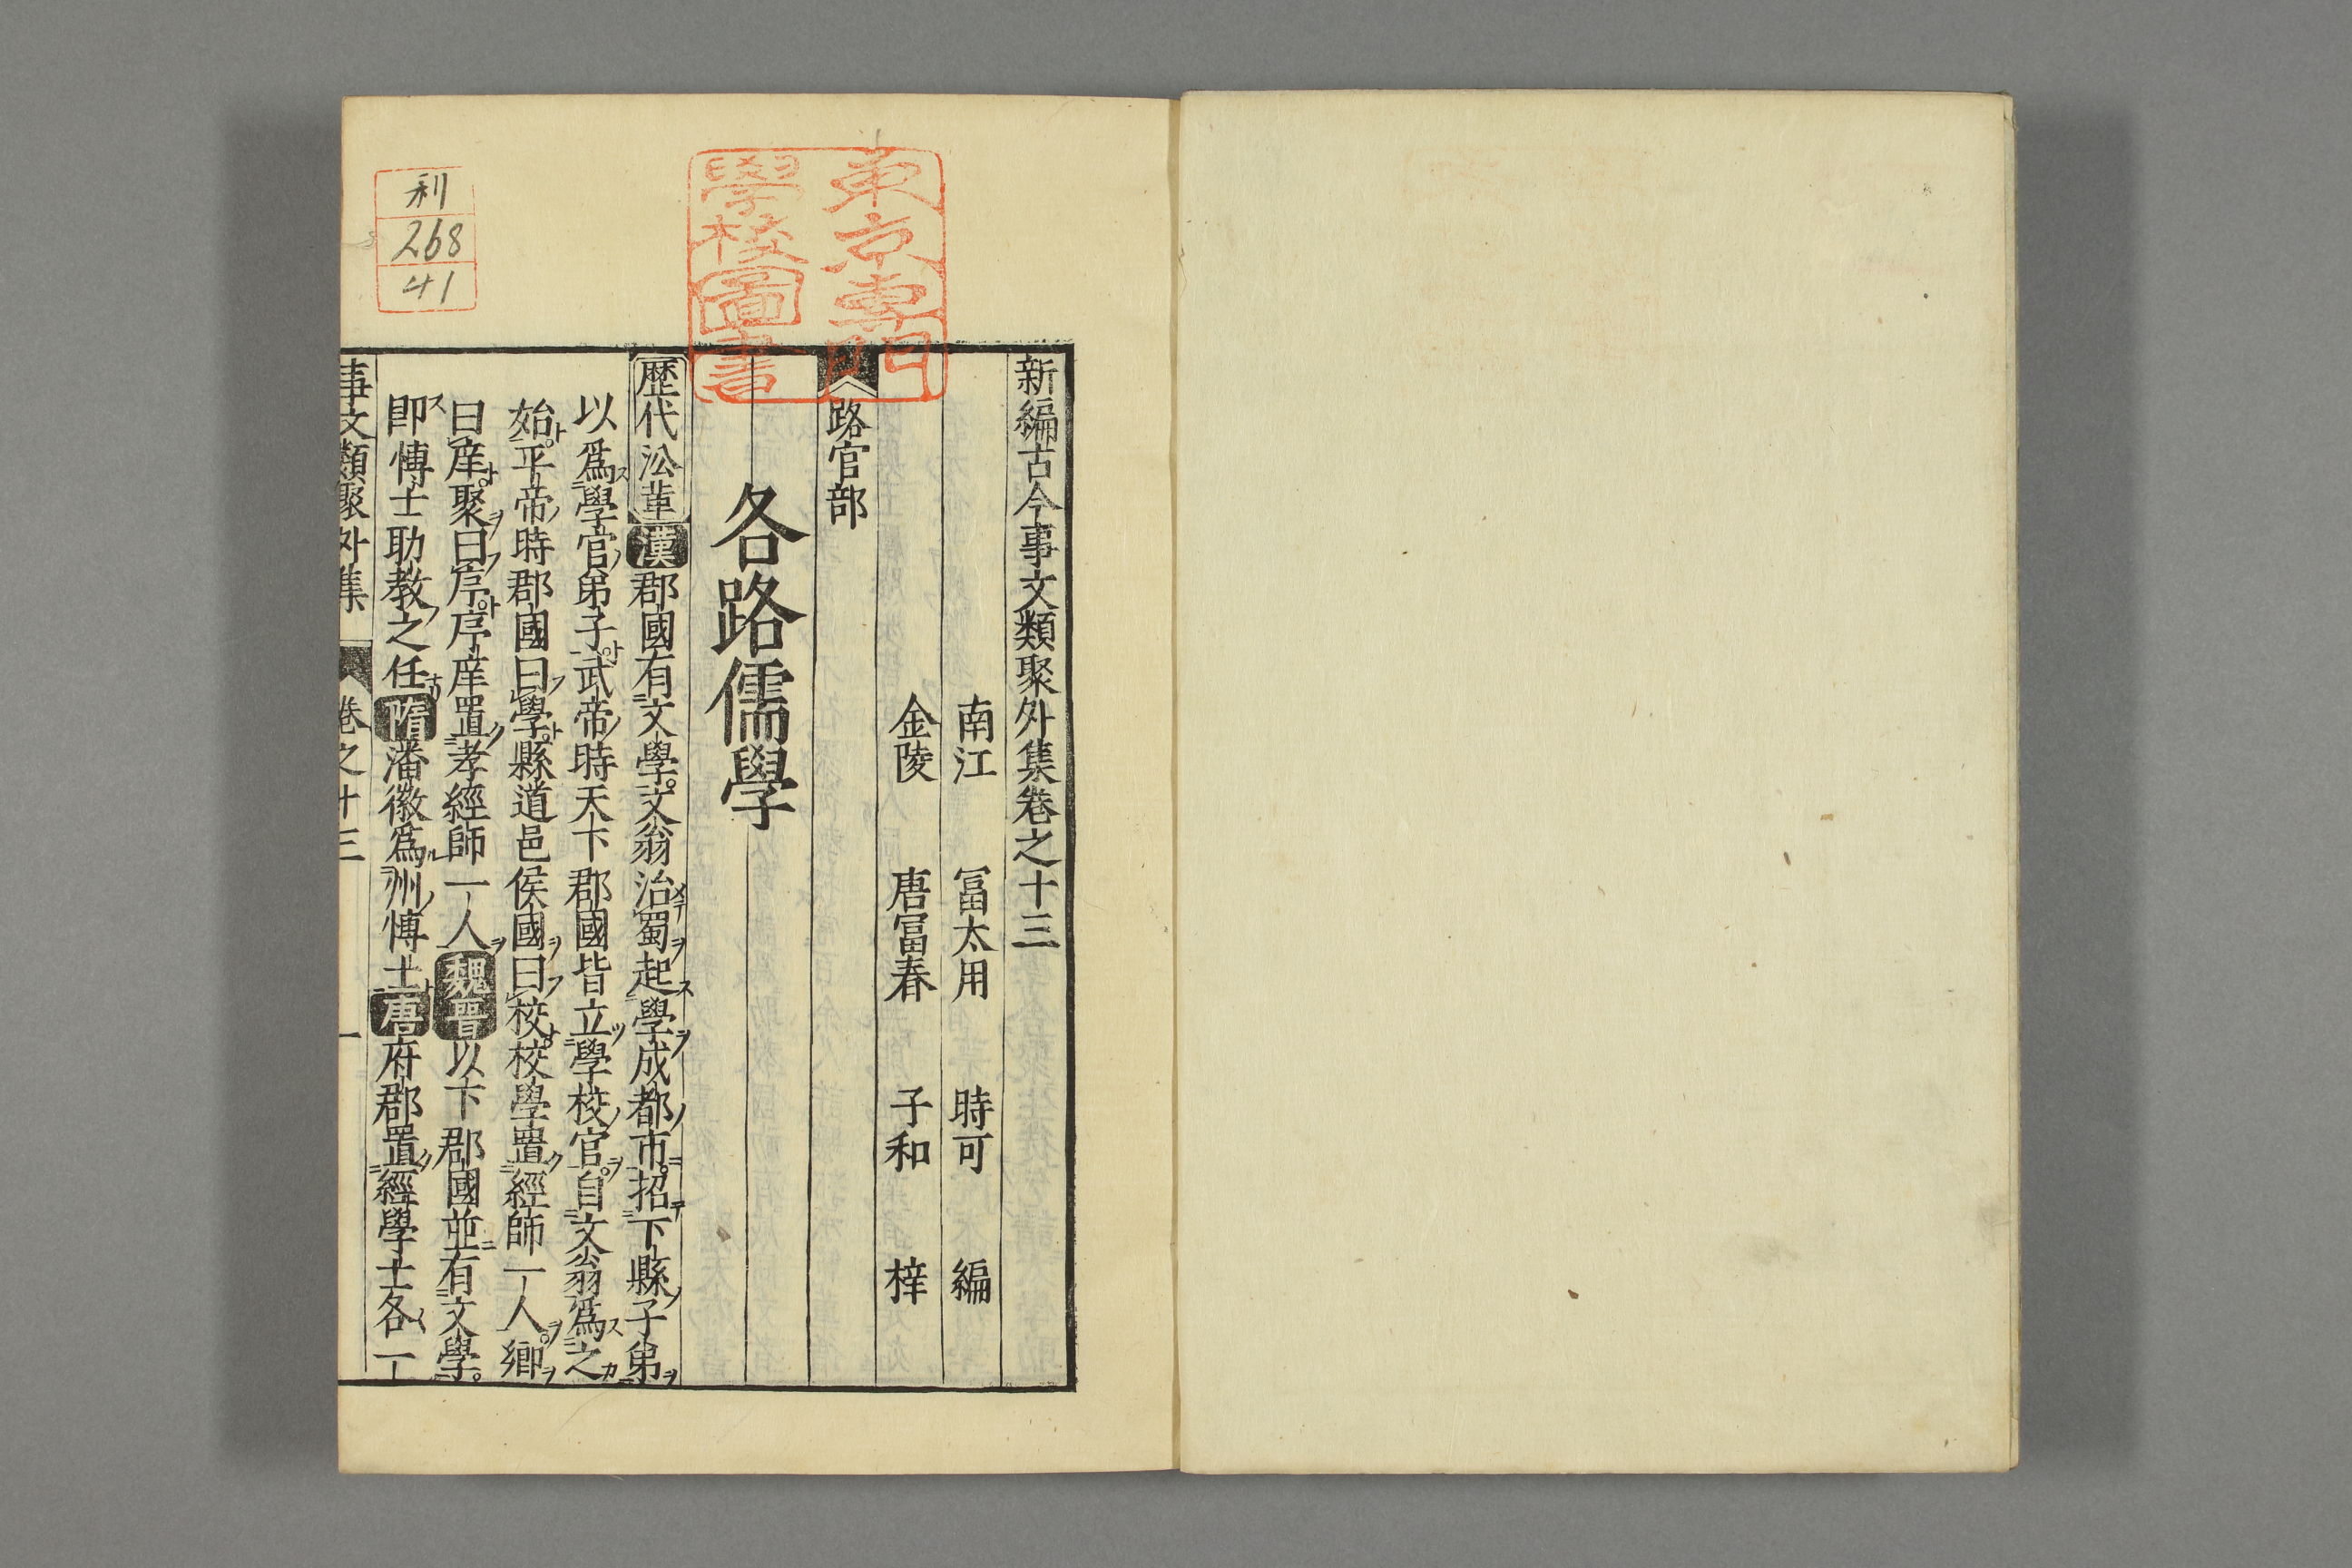 新編古今事文類聚外集卷之十三
南江 冨太用 時可 編
金陵 唐冨春 子和 梓
路官部
各路儒學
歷代㳂革漢郡國有文學文翁治蜀起學成都市招下縣子弟
以爲學官弟子武帝時天下郡國皆立學校官自文翁爲之
始平帝時郡國曰學縣道邑侯國曰校校學置經師一人鄉
曰庠聚曰序序庠置孝經師一人魏晋以下郡國並有文學
即博士助教之任隋潘徽爲州博士唐府郡置經學士各一
事文類聚外集 卷之十三 一
東京專門
學校圖書
利
268
41